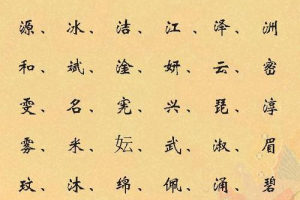 源、冰、洁、江、泽、洲
和、斌、淦、妍、云、密
雯、名、宪、兴、琵、淳
雾、米、妘、武、淑、眉
玟、沐、绵、佩、涌、碧